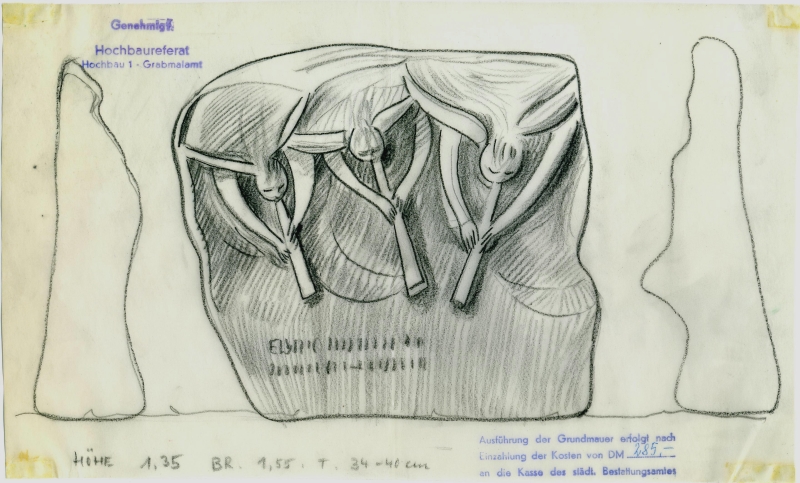 Genehmigt.
Hochbaureferat
Hochbau 1 - Grabmalamt
HÖHE 1,35 BR. 1,55. T. 34-40 cm
Ausführung der Grundmauer erfolgt nach
Einzahlung der Kosten von DM 285,—
an die Kasse des städt. Bestattungsamtes